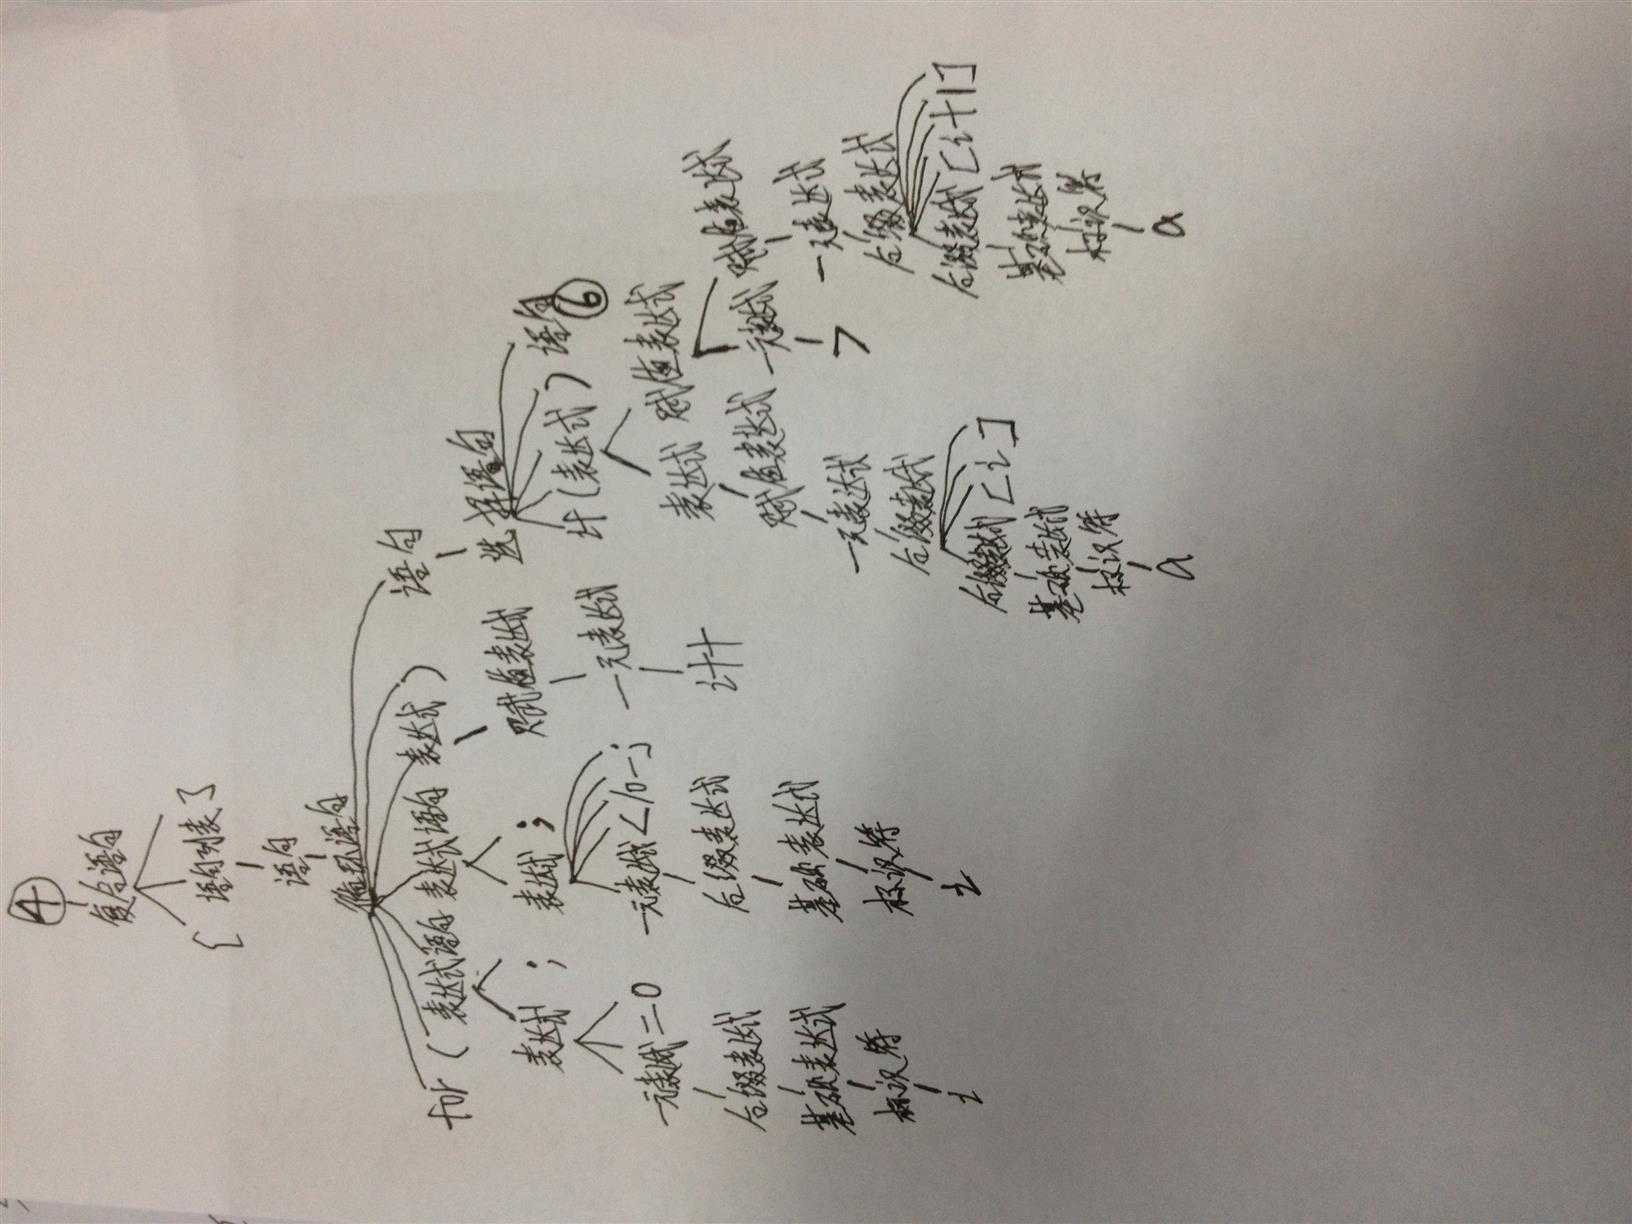 ④
复合语句
{ 语句列表 }
语句
循环语句
for ( 表达式语句 表达式语句 表达式 ) 语句
表达式 ; 表达式 ; 赋值表达式 选择语句
一元表达式 = 0 一元表达式 < 10 - ; 一元表达式 if ( 表达式 ) 语句 ⑥
后缀表达式 后缀表达式 i++ 表达式 赋值表达式
基础表达式 基础表达式 赋值表达式 一元表达式 赋值表达式
标识符 标识符 一元表达式 > 一元表达式
i i 后缀表达式 后缀表达式
后缀表达式 [ i ] 后缀表达式 [ i + 1 ]
基础表达式 基础表达式
标识符 标识符
a a